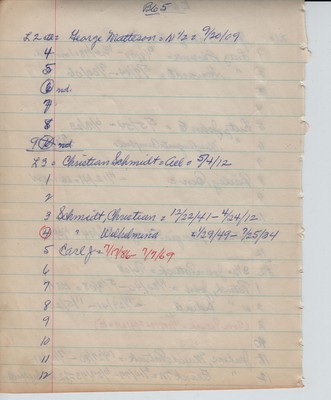 Blk 5
L 2 = George Matteson = N 1/2 = 9/20/09
4
5
6 nd.
7
8
9 nd
L 3 = Christian Schmidt = all = 5/4/12
1
2
3 Schmidt, Christian = 12/22/41 - 4/24/12
4 " = 1/29/49 - 7/25/34
5 Carl J = 7/17/86 - 7/7/69
6
7
8
9
10
11
12